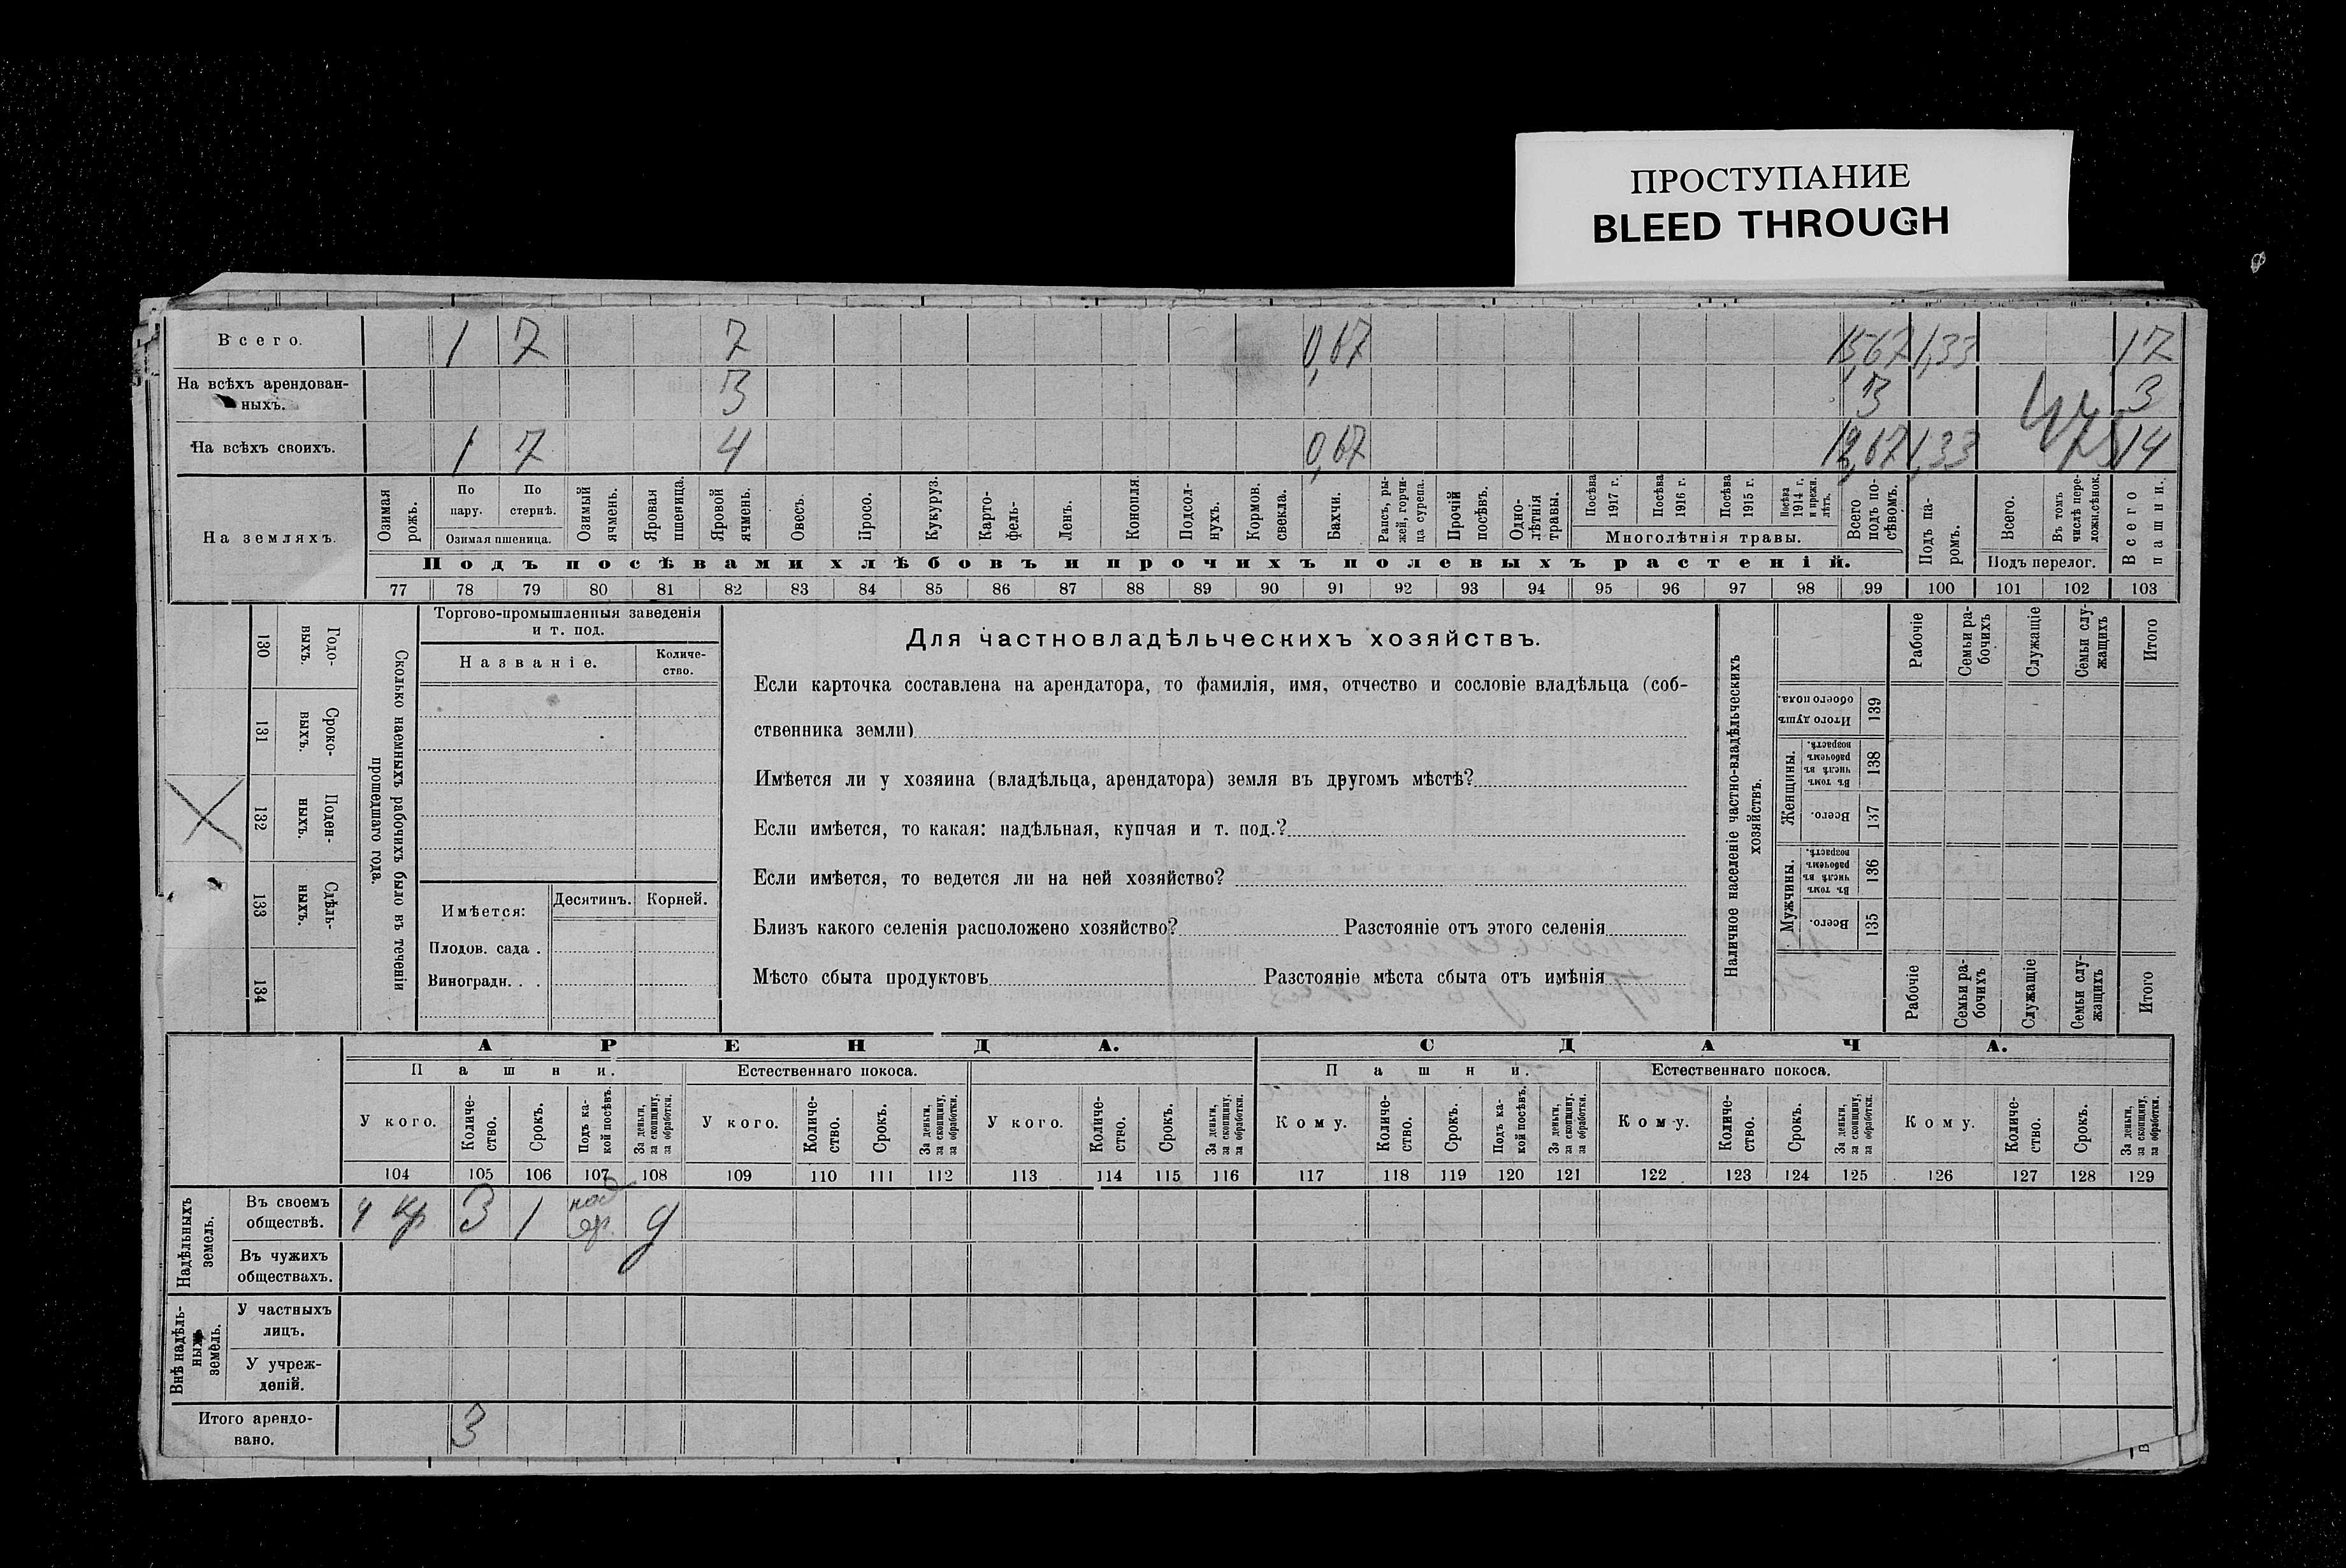 ПРОСТУПАНИЕ
BLEED THROUGH
Всего. 1 7 7 0,67 15,67 1,33 17
На всѣхъ арендован-
ныхъ. 3 3 3
На всѣхъ своихъ. 1 7 4 0,67 12,67 1,33 14
На земляхъ.
Озимая рожь.
По пару.
По стернѣ.
Озимая пшеница.
Озимый ячмень.
Яровая пшеница.
Яровой ячмень.
Овесъ.
Просо.
Кукуруз.
Карто-
фель.
Ленъ.
Конопля.
Подсол-
нухъ.
Кормов. свекла.
Бахчи.
Рапсъ, ры-
жей, горчи-
ца сурепа.
Прочій посѣвъ.
Одно-
лѣтнія травы.
Посѣва 1917 г.
Посѣва 1916 г.
Посѣва 1915 г.
Посѣва 1914 г. и прежн. лѣтъ.
Многолѣтнія травы.
Всего подъ по-
сѣвомъ.
Подъ па-
ромъ.
Всего.
Въ томъ числѣ пере-
ложн. сѣнок.
Подъ перелог.
Всего пашни.
Подъ посѣвами хлѣбовъ и прочихъ полевыхъ растеній.
77 78 79 80 81 82 83 84 85 86 87 88 89 90 91 92 93 94 95 96 97 98 99 100 101 102 103
130 Годо-
выхъ.
131 Сроко-
выхъ.
132 Поден-
ныхъ.
133 Сдѣль-
ныхъ.
134
Сколько наемныхъ рабочихъ было въ теченіи
прошедшаго года.
Торгово-промышленныя заведенія
и т. под.
Названіе.
Количе-
ство.
Имѣется:
Десятинъ.
Корней.
Плодов. сада .
Виноградн. . .
Для частновладѣльческихъ хозяйствъ.
Если карточка составлена на арендатора, то фамилія, имя, отчество и сословіе владѣльца (соб-
ственника земли)
Имѣется ли у хозяина (владѣльца, арендатора) земля въ другомъ мѣстѣ?
Если имѣется, то какая: надѣльная, купчая и т. под.?
Если имѣется, то ведется ли на ней хозяйство?
Близъ какого селенія расположено хозяйство? Разстояніе отъ этого селенія
Мѣсто сбыта продуктовъ Разстояніе мѣста сбыта отъ имѣнія
Наличное населеніе частно-владѣльческихъ
хозяйствъ.
Рабочіе
Семьи ра-
бочихъ
Служащіе
Семьи слу-
жащихъ
Итого
Итого душъ обоего пола. 139
Женщины.
Въ томъ числѣ въ рабочемъ возрастѣ. 138
Всего. 137
Мужчины.
Въ томъ числѣ въ рабочемъ возрастѣ. 136
Всего. 135
Рабочіе
Семьи ра-
бочихъ
Служащіе
Семьи слу-
жащихъ
Итого
АРЕНДА. СДАЧА.
Пашни. Естественнаго покоса. Пашни. Естественнаго покоса.
У кого.
Количе-
ство.
Срокъ.
Подъ ка-
кой посѣвъ.
За деньги, за скопщину, за обработки.
У кого.
Количе-
ство.
Срокъ.
За деньги, за скопщину, за обработки.
У кого.
Количе-
ство.
Срокъ.
За деньги, за скопщину, за обработки.
Кому.
Количе-
ство.
Срокъ.
Подъ ка-
кой посѣвъ.
За деньги, за скопщину, за обработки.
Кому.
Количе-
ство.
Срокъ.
За деньги, за скопщину, за обработки.
Кому.
Количе-
ство.
Срокъ.
За деньги, за скопщину, за обработки.
104 105 106 107 108 109 110 111 112 113 114 115 116 117 118 119 120 121 122 123 124 125 126 127 128 129
Надѣльныхъ
земель.
Въ своемъ
обществѣ. у кр 3 1 д
Въ чужихъ
обществахъ.
Внѣ надѣль-
ныхъ
земель.
У частныхъ
лицъ.
У учреж-
деній.
Итого арендо-
вано. 3